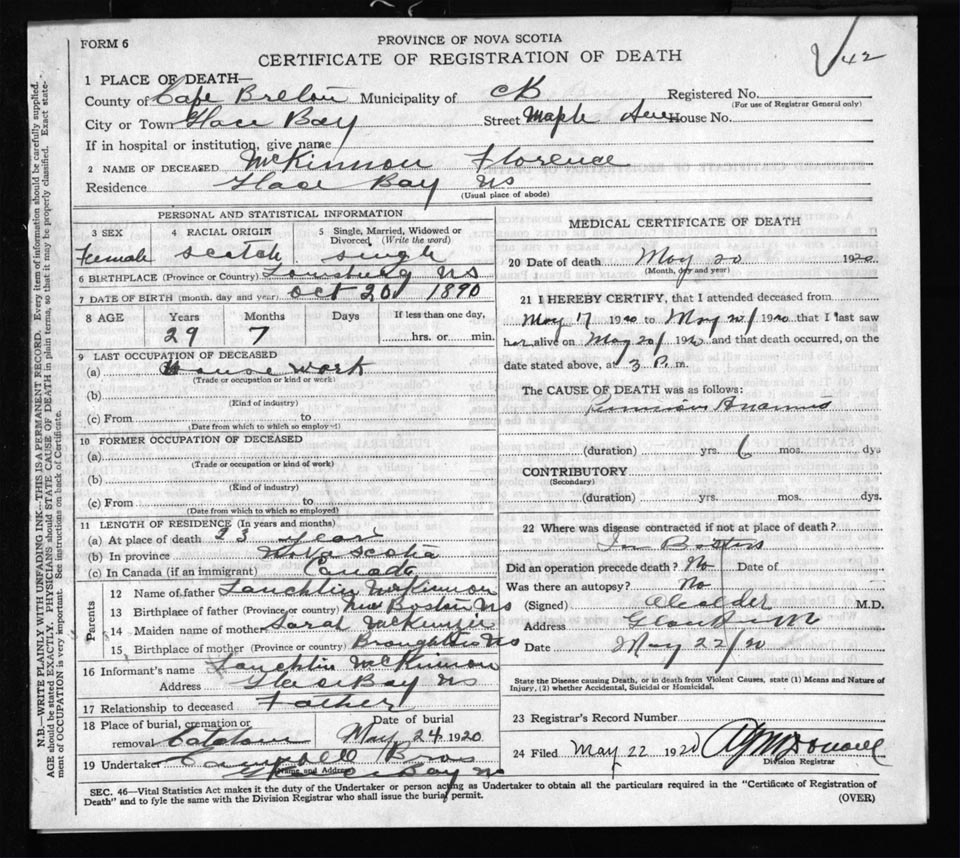 FORM 6
PROVINCE OF NOVA SCOTIA
CERTIFICATE OF REGISTRATION OF DEATH
42
1 PLACE OF DEATH—
County of Cape Breton Municipality of CB Registered No.
(For use of Registrar General only)
City or Town Glace Bay Street Maple Ave House No.
If in hospital or institution, give name
2 NAME OF DECEASED McKinnon Florence
Residence Glace Bay NS
(Usual place of abode)
PERSONAL AND STATISTICAL INFORMATION
3 SEX 4 RACIAL ORIGIN 5 Single, Married, Widowed or Divorced, (Write the word)
Female Scotch Single
6 BIRTHPLACE (Province or Country) Louisburg NS
7 DATE OF BIRTH (month, day and year) Oct 20/ 1890
8 AGE Years Months Days If less than one day,
29 7 hrs. or min.
9 LAST OCCUPATION OF DECEASED
(a) House work
(Trade or occupation or kind or work)
(b)
(Kind of industry)
(c) From to
(Date from which to which so employed)
10 FORMER OCCUPATION OF DECEASED
(a)
(Trade or occupation or kind of work)
(b)
(Kind of industry)
(c) From to
(Date from which to which so employed)
11 LENGTH OF RESIDENCE (In years and months)
(a) At place of death 23 years
(b) In province Nova Scotia
(c) In Canada (if an immigrant) Canada
Parents
12 Name of father Lauchlin McKinnon
13 Birthplace of father (Province or country) New Boston NS
14 Maiden name of mother Sarah McKenzie
15 Birthplace of mother (Province or country) Broughton NS
16 Informant's name Lauchlin McKinnon
Address Glace Bay NS
17 Relationship to deceased Father
18 Place of burial, cremation or removal Catalone
Date of burial May 24 1920
19 Undertaker Campbell Bros
(Name and Address)
Glace Bay NS
MEDICAL CERTIFICATE OF DEATH
20 Date of death May 20 1920
(Month, day and year)
21 I HEREBY CERTIFY, that I attended deceased from
May 17 1920 to May 20/ 1920 that I last saw
her alive on May 20/ 1920 and that death occurred, on the
date stated above, at 3 P. m.
The CAUSE OF DEATH was as follows:
Pernicious Anaemia
(duration) yrs. 6 mos. dys
CONTRIBUTORY
(Secondary)
(duration) yrs. mos. dys.
22 Where was disease contracted if not at place of death?
In Boston
Did an operation precede death? No Date of
Was there an autopsy? No
(Signed) M.D.
Address
Date May 22/20
State the Disease causing Death, or in death from Violent Causes, state (1) Means and Nature of Injury, (2) whether Accidental, Suicidal or Homicidal.
23 Registrar's Record Number
24 Filed May 22 1920
Division Registrar
SEC. 46—Vital Statistics Act makes it the duty of the Undertaker or person acting as Undertaker to obtain all the particulars required in the "Certificate of Registration of
Death" and to fyle the same with the Division Registrar who shall issue the burial permit.
(OVER)
N.B.—WRITE PLAINLY WITH UNFADING INK—THIS IS A PERMANENT RECORD. Every item of information should be carefully supplied.
AGE should be stated EXACTLY. PHYSICIANS should STATE CAUSE OF DEATH in plain terms, so that it may be properly classified. Exact state-
ment of OCCUPATION is very important. See instructions on back of Certificate.